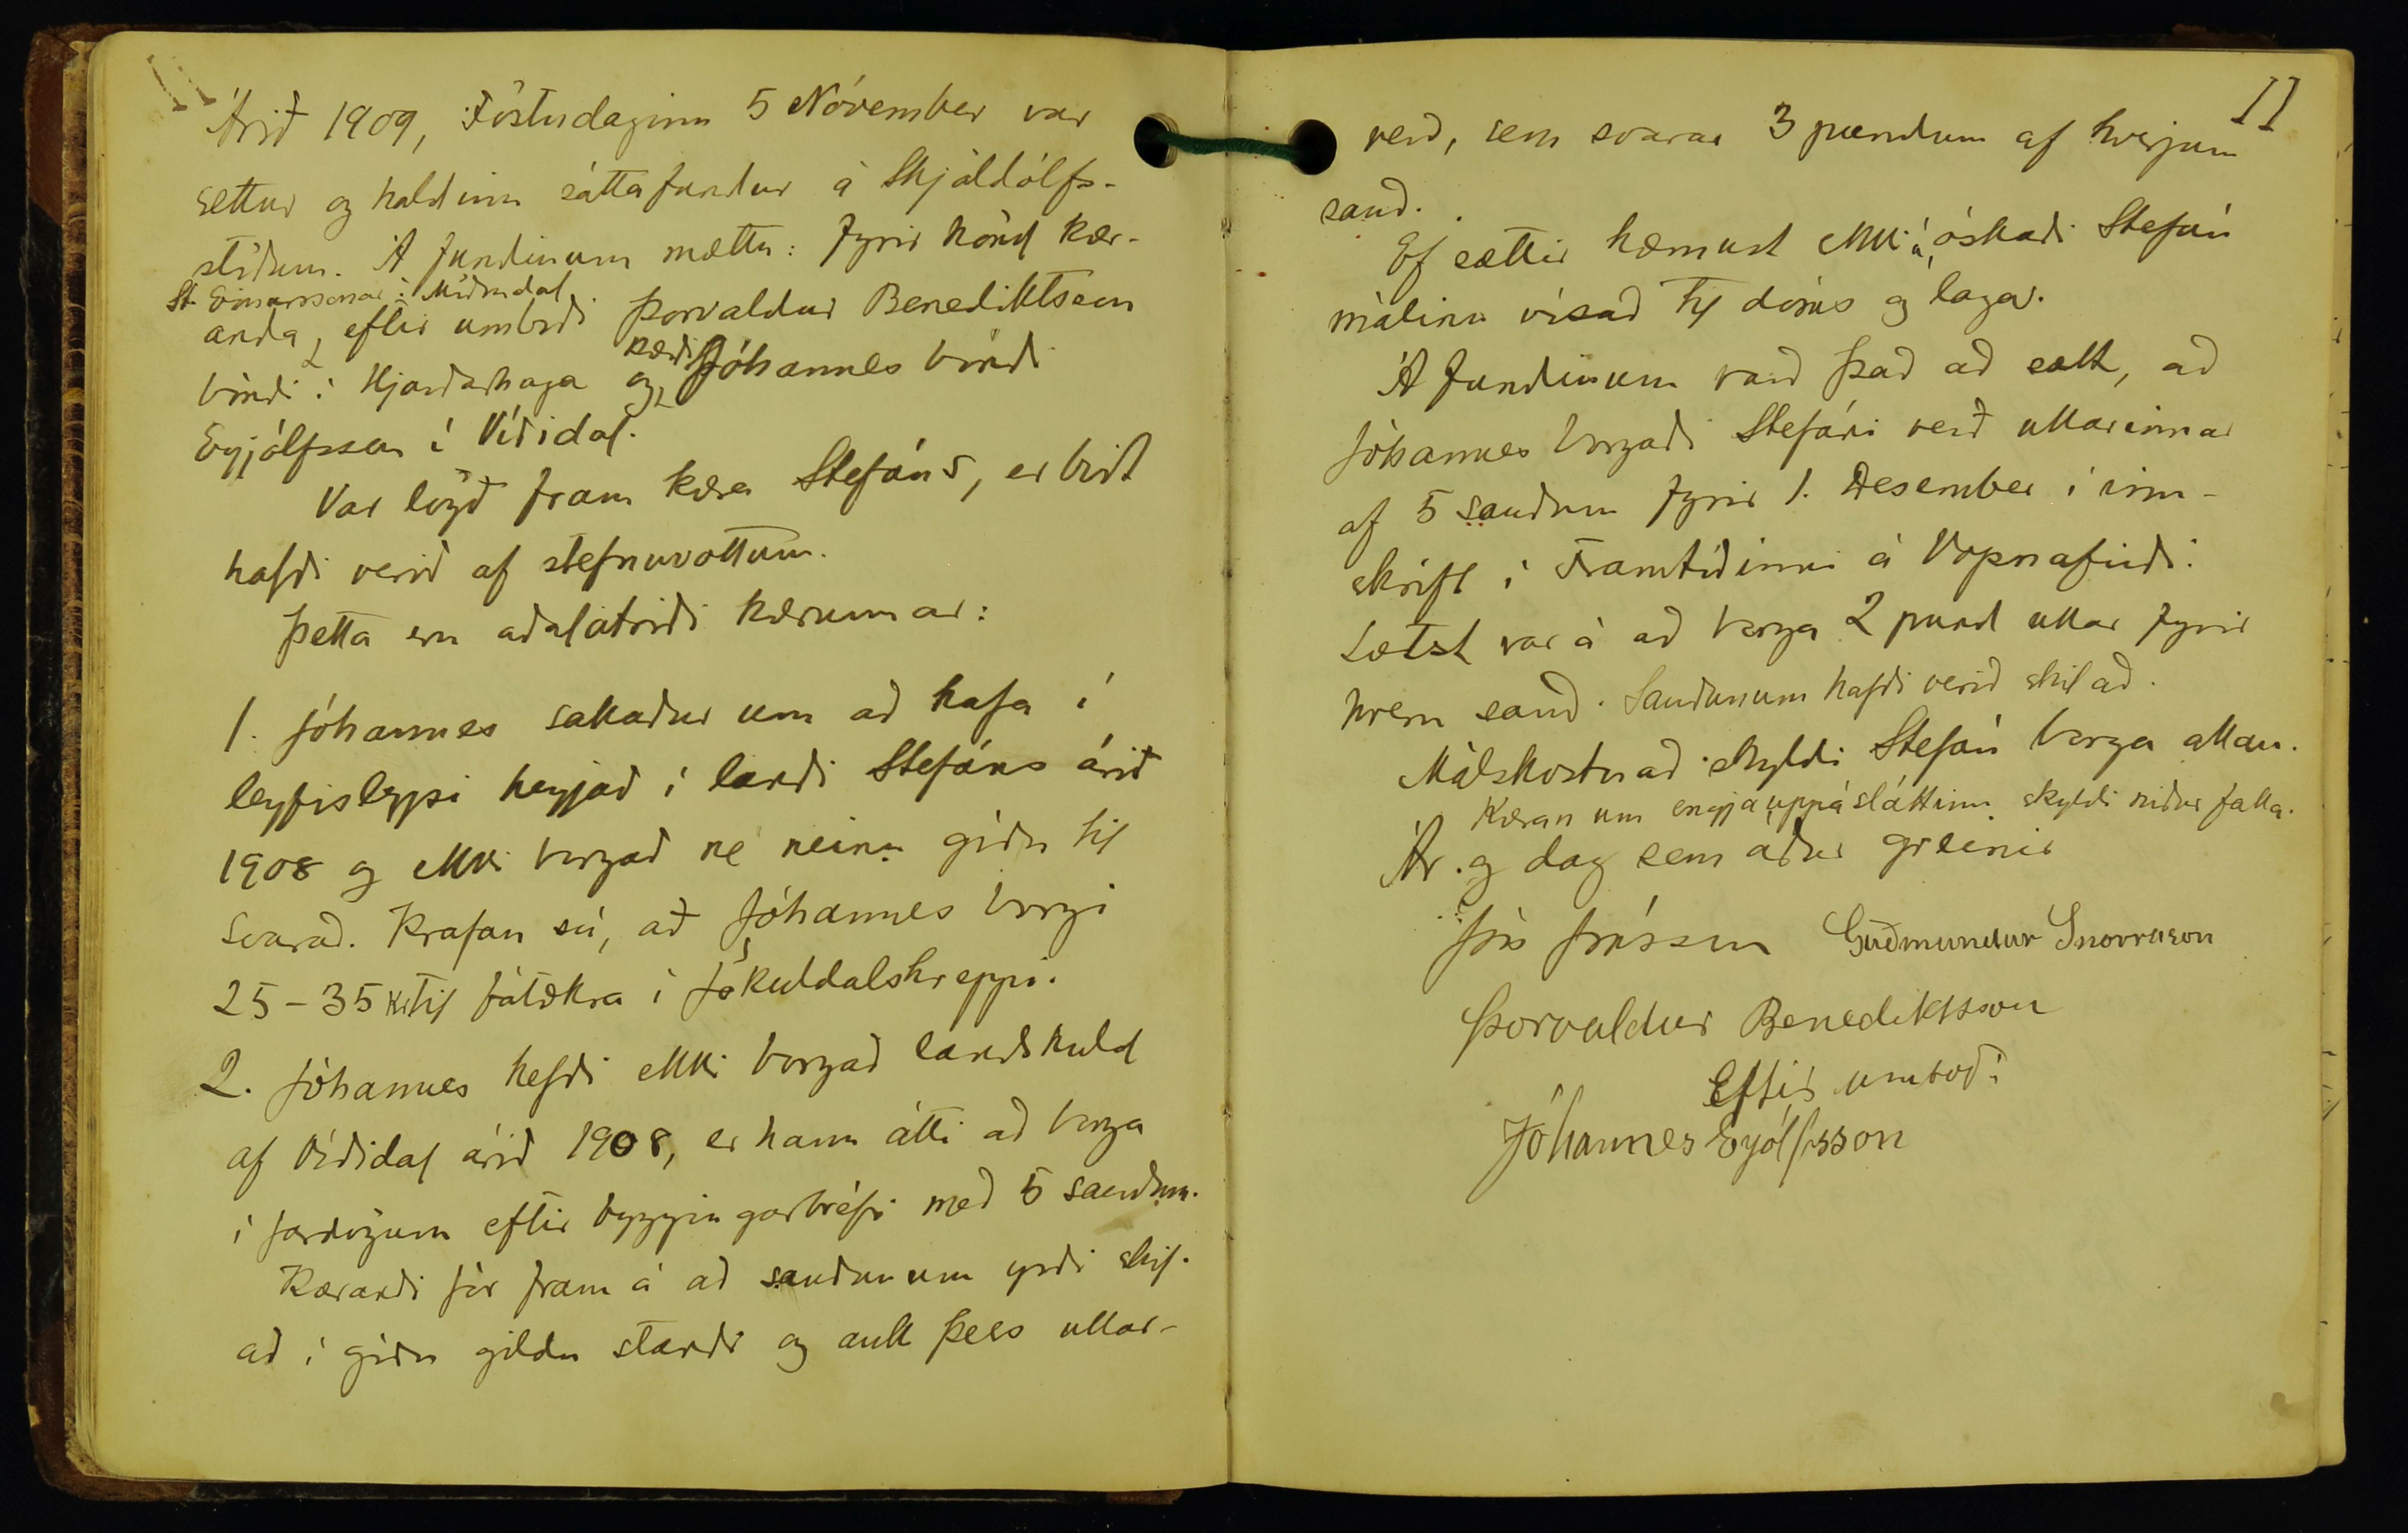 Árið 1909, Föstudaginn 5 Nóvember var
settur og haldinn sáttafundur á Skjöldólfs-
stöðum. Á fundinum mættu: Fyrir hönd kær-
St. Einarssonar í Möðrudal
anda, eftir umboði Þorvaldur Benediktsson
bóndi í Hjarðarhaga og kærði Jóhannes bóndi
Eyjólfsson í Víðidal.
Var lögð fram kæra Stefáns, er birt
hafði verið af stefnuvottum.
Þetta eru aðalatriði kærunnar:
1. Jóhannes sakaður um að hafa í
leyfisleysi heyjað í landi Stefáns árið
1908 og ekki borgað né neinu góðu til
svarað. Krafan sú, að Jóhannes borgi
25-35 kr til fátækra í Jökuldalshreppi.
2. Jóhannes hefði ekki borgað landskuld
af Víðidal árið 1908, er hann átti að borga
í fardögum eftir byggingarbréfi með 5 sauðum.
Kærandi fór fram á að sauðunum yrði skil-
að í góðu gildu standi og auk þess ullar-
11
verð, sem svarar 3 pundum af hverjum
sauð.
Ef sættir kæmust ekki á, óskaði Stefán
málinu vísað til dóms og laga.
Á fundinum varð það að sætt, að
Jóhannes borgaði Stefáni verð ullarinnar
af 5 sauðum fyrir 1. Desember í inn-
skrift í Framtíðinni á Vopnafirði.
Sætst var á að borga 2 pund ullar fyrir
hvern sauð. Sauðunum hafði verið skilað.
Málskostnað skyldi Stefán borga allan.
Kæran um engjauppásláttinn skyldi niður falla.
Ár og dag sem áður greinir
Jón Jónsson Guðmundur Snorrason
Þorvaldur Benediktsson
Eftir umboði
Jóhannes Eyólfsson